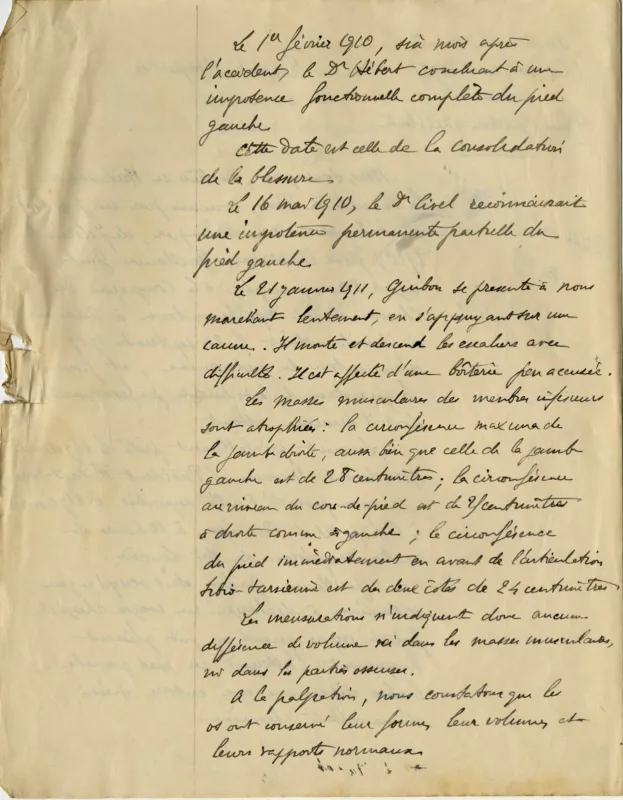 Le 1er février 1910, six mois après
l'accident, le Dr Hébert concluait à une
impotence fonctionnelle complète du pied
gauche
cette date est celle de la consolidation
de la blessure
Le 16 mai 1910, le Dr Livel reconnaissait
une impotence permanente partielle du
pied gauche
Le 21 janvier 1911, Guibon se présente à nous
marchant lentement, en s'appuyant sur une
canne. Il monte et descend les escaliers avec
difficulté. Il est affecté d'une boîterie peu accusée.
Les masses musculaires des membres inférieurs
sont atrophiées : la circonférence maxima de
la jambe droite, aussi bien que celle de la jambe
gauche est de 28 centimètres ; la circonférence
au niveau du cou-de-pied est de centimètres
à droite comme à gauche ; la circonférence
du pied immédiatement en avant de l'articulation
tibio-tarsienne est des deux côtés de 24 centimètres
Les mensurations n'indiquent donc aucune
différence de volume ni dans les masses musculaires,
ni dans les parties osseuses.
A la palpation, nous constatons que les
os ont conservé leur forme, leur volume, et
leurs rapports normaux